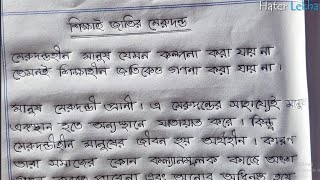 Hater Lekha
শিক্ষাই জাতির মেরুদন্ড
মেরুদন্ডহীন মানুষ যেমন কল্পনা করা যায় না
তেমনই শিক্ষাহীন জাতিকেও ভাবনা করা যায় না।
মানুষ মেরুদন্ডী প্রানী। এ মেরুদন্ডের সাহায্যেই মানুষ
একস্থান হতে অন্যস্থানে যাতায়াত করে। কিন্তু
মেরুদন্ডহীন মানুষের জীবন হয় অর্থহীন। কারণ
তারা সমাজের কোন কল্যানমূলক কাজে অংশ